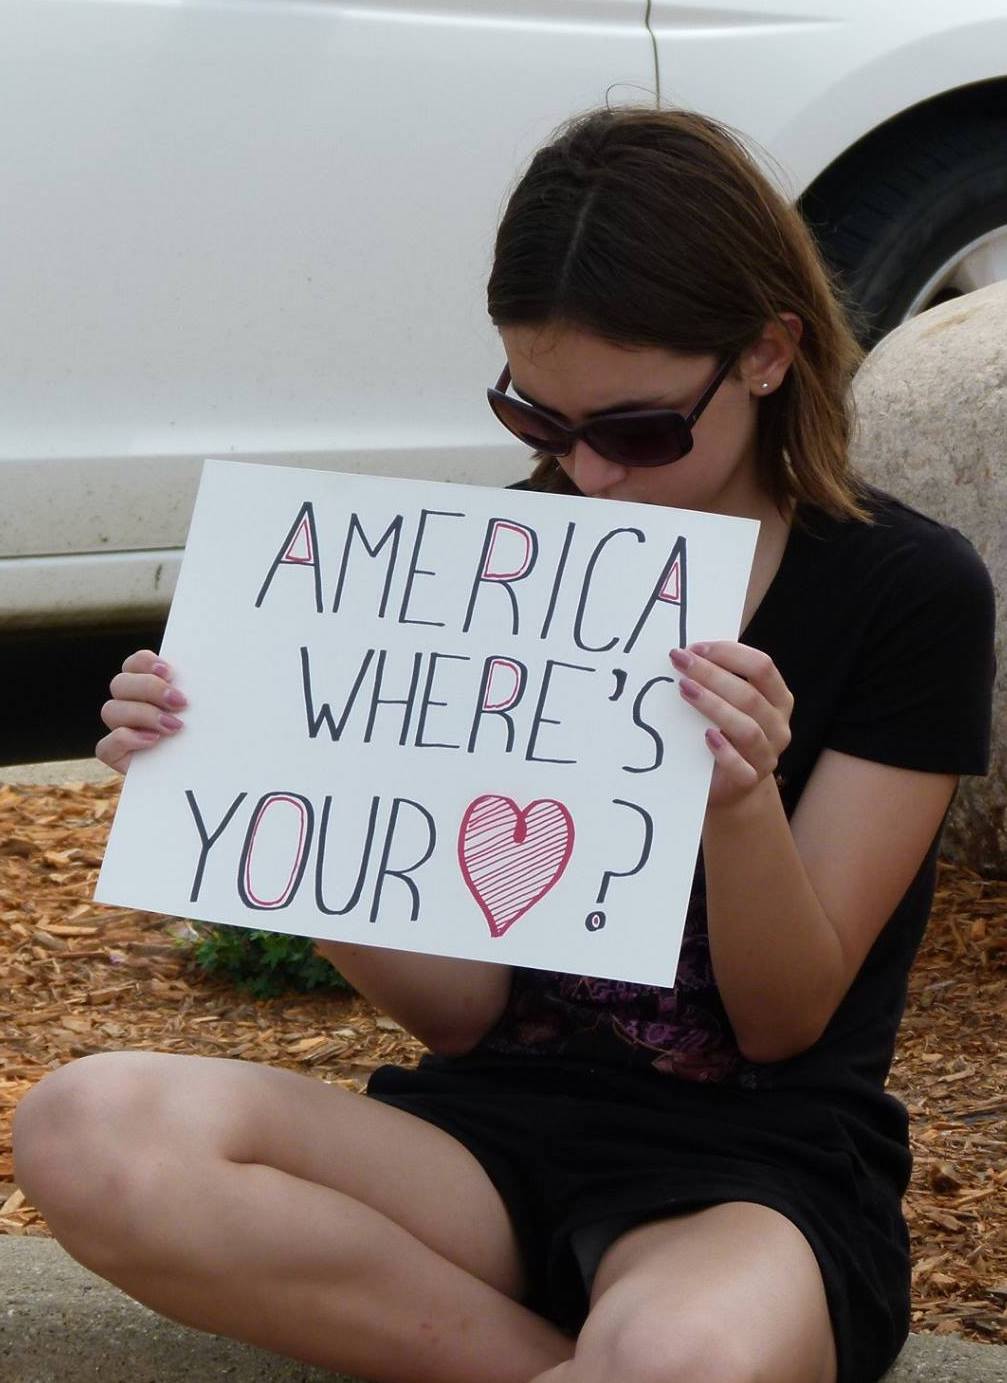 AMERICA
WHERE'S
YOUR ❤?